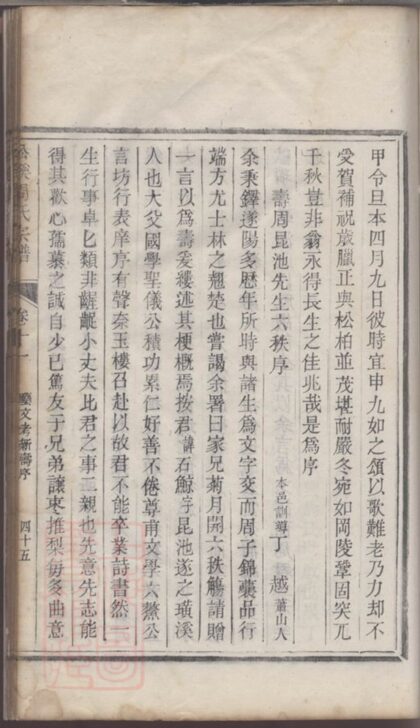 甲令旦本四月九日彼時宜申九如之頌以歌難老乃力却不
受賀補祝歲臘正與松柏並茂堪耐嚴冬宛如岡陵鞏固突兀
千秋豈非翁永得長生之佳兆哉是為序
壽周昆池先生六秩序 本邑訓導丁 越 蕭山人
余秉鐸遂陽多歷年所時與諸生為文字交而周子錦囊品行
端方尤士林之翹楚也嘗謁余署曰家兄菊月開六秩觴請贈
一言以為壽爰縷述其梗概焉按君諱石鯨字昆池遂之璜溪
人也大父國學聖儀公積功累仁好善不倦尊甫文學六鰲公
言坊行表庠序有聲奈玉樓召赴以故君不能卒業詩書然
生行事卓匕類非齷齪小丈夫比君之事二親也先意先志能
得其歡心孺慕之誠自少已篤友于兄弟讓棗推梨每多曲意
周氏宗譜 卷十一 藝文考新壽序 四十五